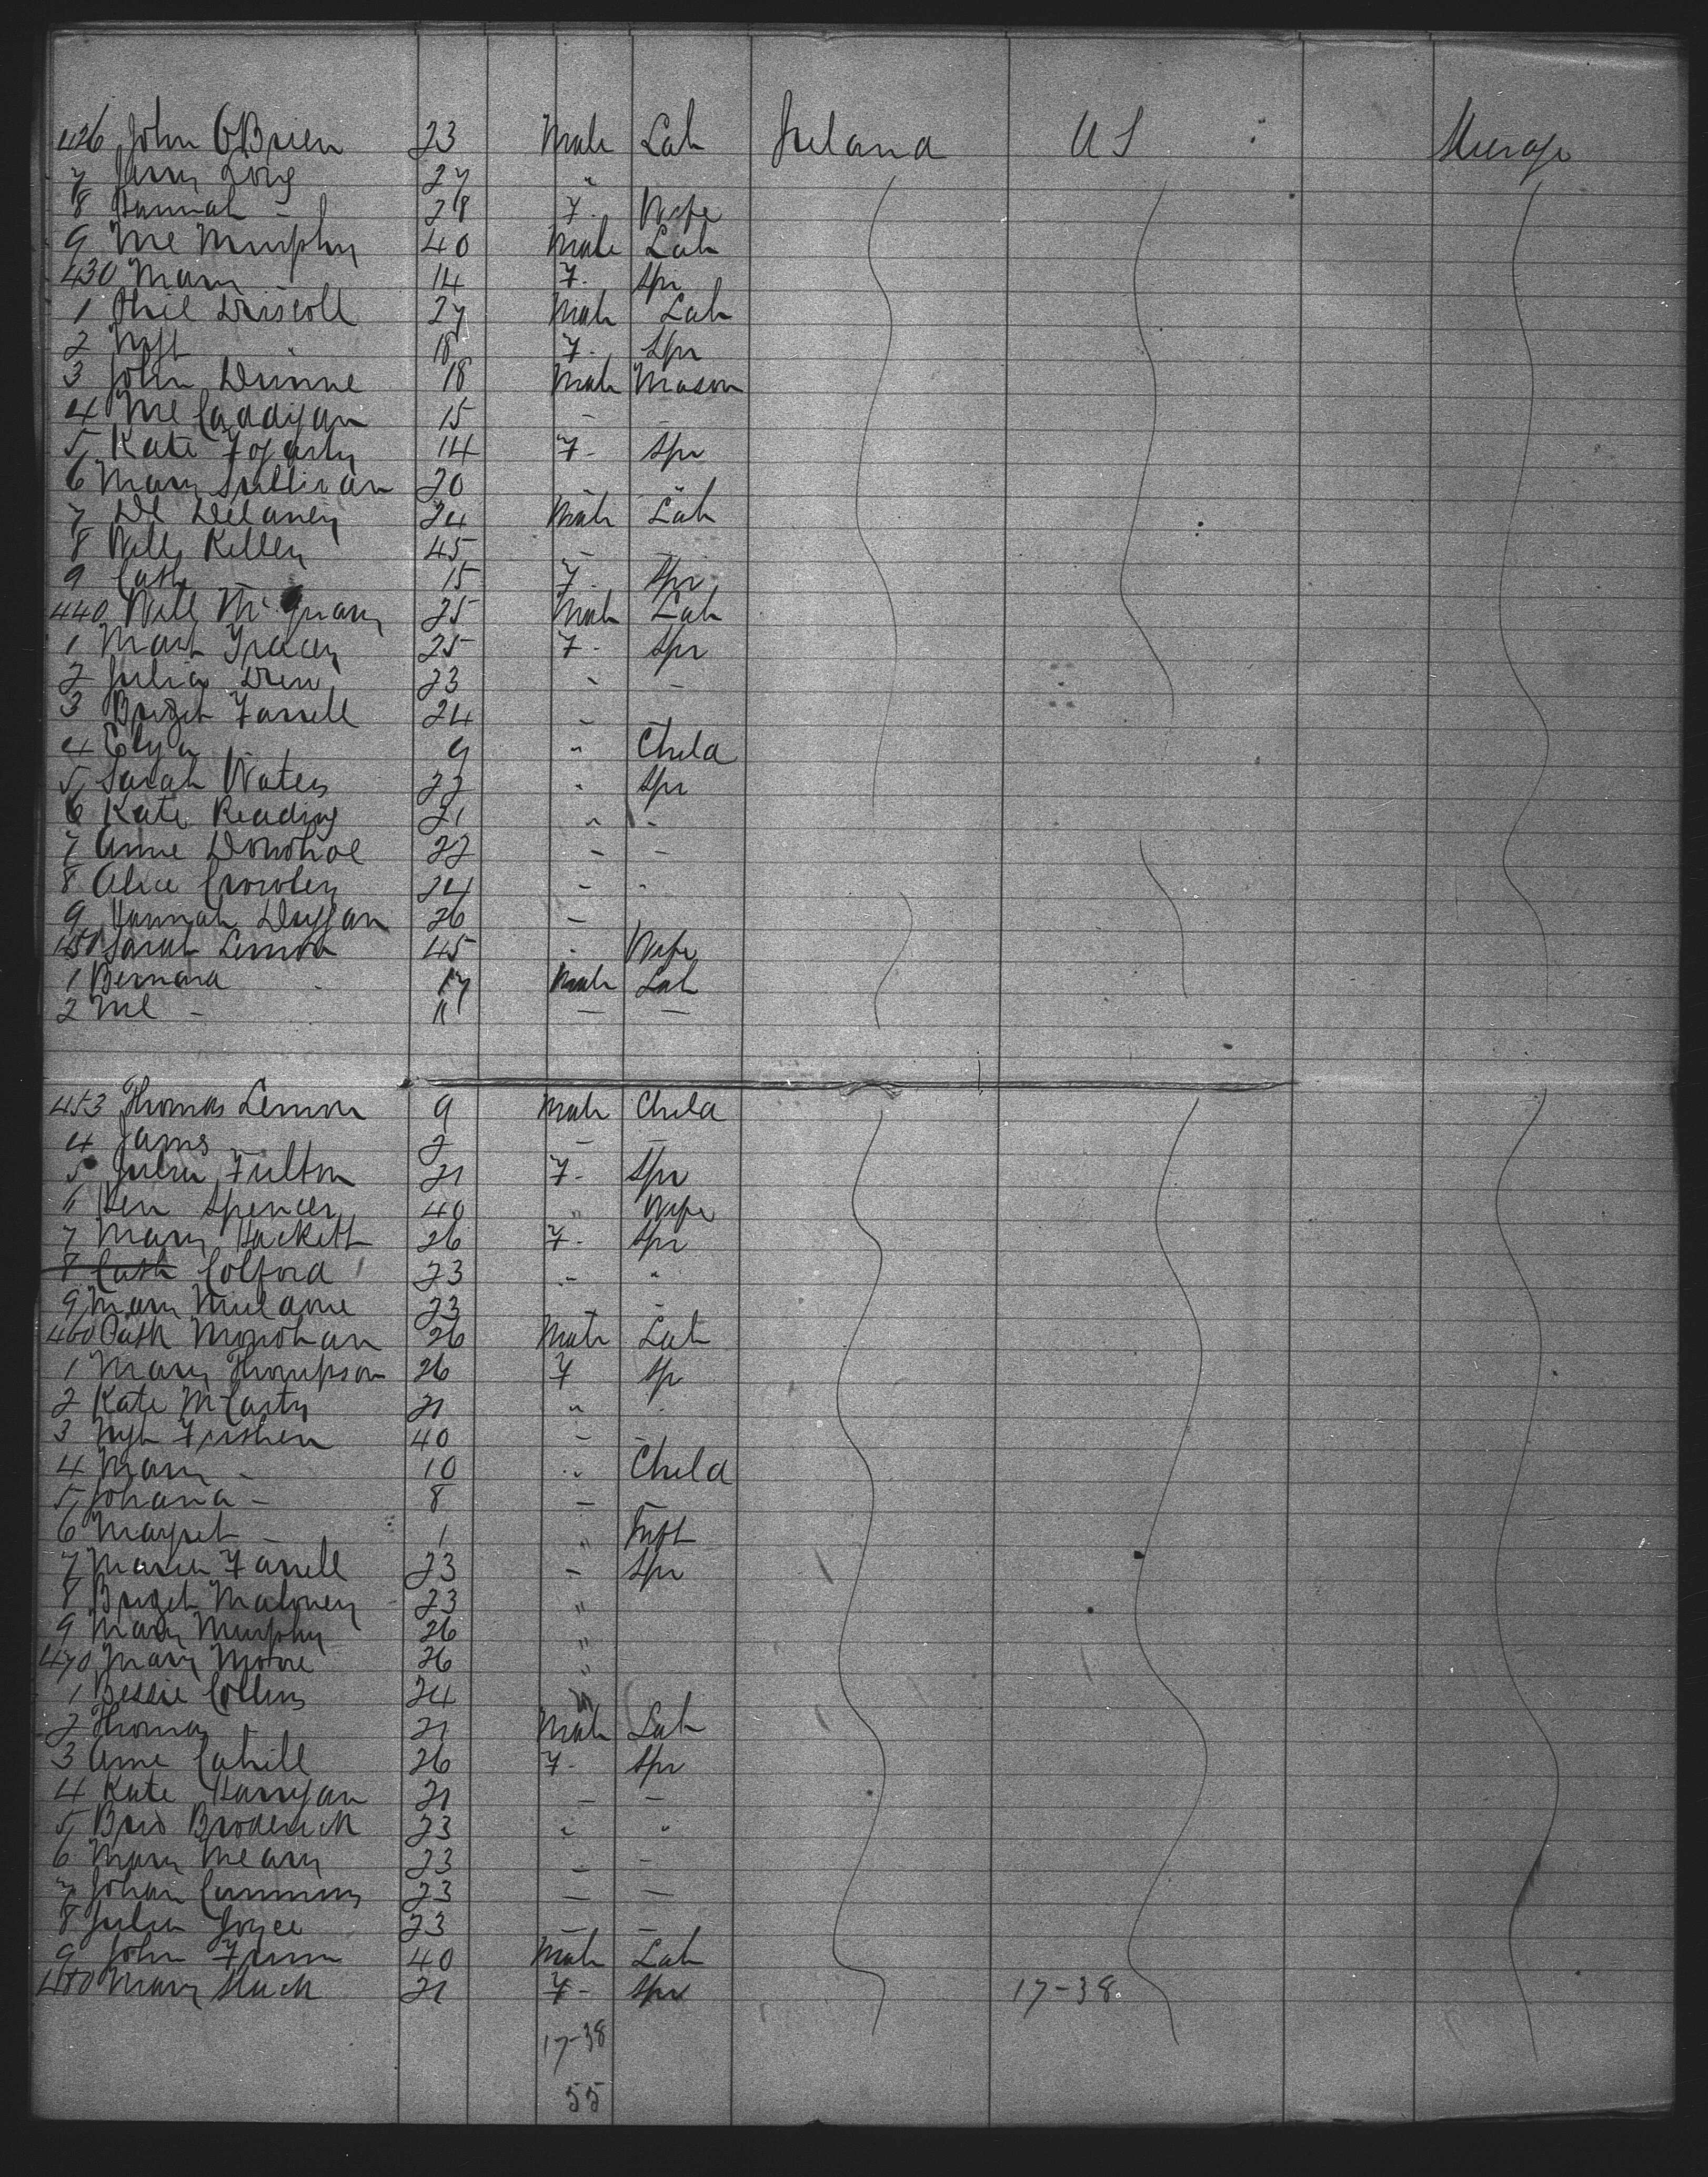 426 John OBrien 23 Male Lab Ireland US Steerage
7 James Long 27 "
8 Hannah - 28 F. Wife
9 Ml Murphy 40 Male Lab
430 Mary 14 F. Spr
1 Phil Driscoll 27 Male Lab
2 18 F. Spr
3 John Dunne 18 Male Mason
4 Ml Caddigan 15 - -
5 Kate Fogarty 14 F- Spr
6 Mary Sullivan 20 - -
7 Dl Delaney 24 Male Lab
8 Willm Killey 45 - -
9 Cath 15 F. Spr
440 Will 25 Male Lab
1 Mart Gracey 25 F- Spr
2 Julia Drew 23 " -
3 Bridget Farrell 24 - -
4 Eliza 9 " Child
5 Sarah Waters 22 " Spr
6 Kate Reading 21 " -
7 Anne Donohoe 22 - -
8 Alice Crowley 24 - -
9 Hannah Duggan 26 -
450 Sarah Lennon 45 - Wife
1 Bernard 17 Male Lab
2 Ml - 11 - -
453 Thomas Lennon 9 Male Child
4 James 2 - -
5 Julia Fulton 21 F- Spr
6 Spencer 40 " Wife
7 Mary Hackett 26 F- Spr
8 Cath Colford 23 - "
9 Mary 23 - -
460 Patk Monohan 26 Male Lab
1 Mary Thompson 26 F Sp
2 Kate McCarty 21 "
3 40 - -
4 Mary - 10 " Child
5 Johana - 8 - -
6 Margret - 1 " Inft
7 Maria Farrell 23 - Spr
8 Bridget Maloney 23 "
9 Mary Murphy 26 "
470 Mary Moore 26 "
1 Bessie Collins 24 "
2 Thomas 21 Male Lab
3 Anne Cahill 26 F- Spr
4 Kate Harrigan 21 - -
5 Brid Broderick 23 " "
6 Mary Meany 23 - -
7 Johan Cummins 23 - -
8 Julia Joyce 23 - -
9 John Finn 40 Male Lab
480 Mary 21 F- Spr 17-38
17-38
55